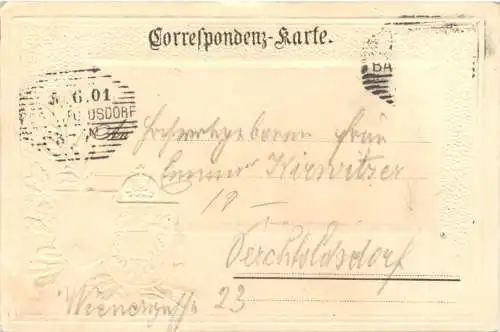 Correspondenz-Karte.
6.01
BA
An Hochwohlgeboren Frau
Kirwitzer
19 -
Perchtoldsdorf
Wienergasse 23